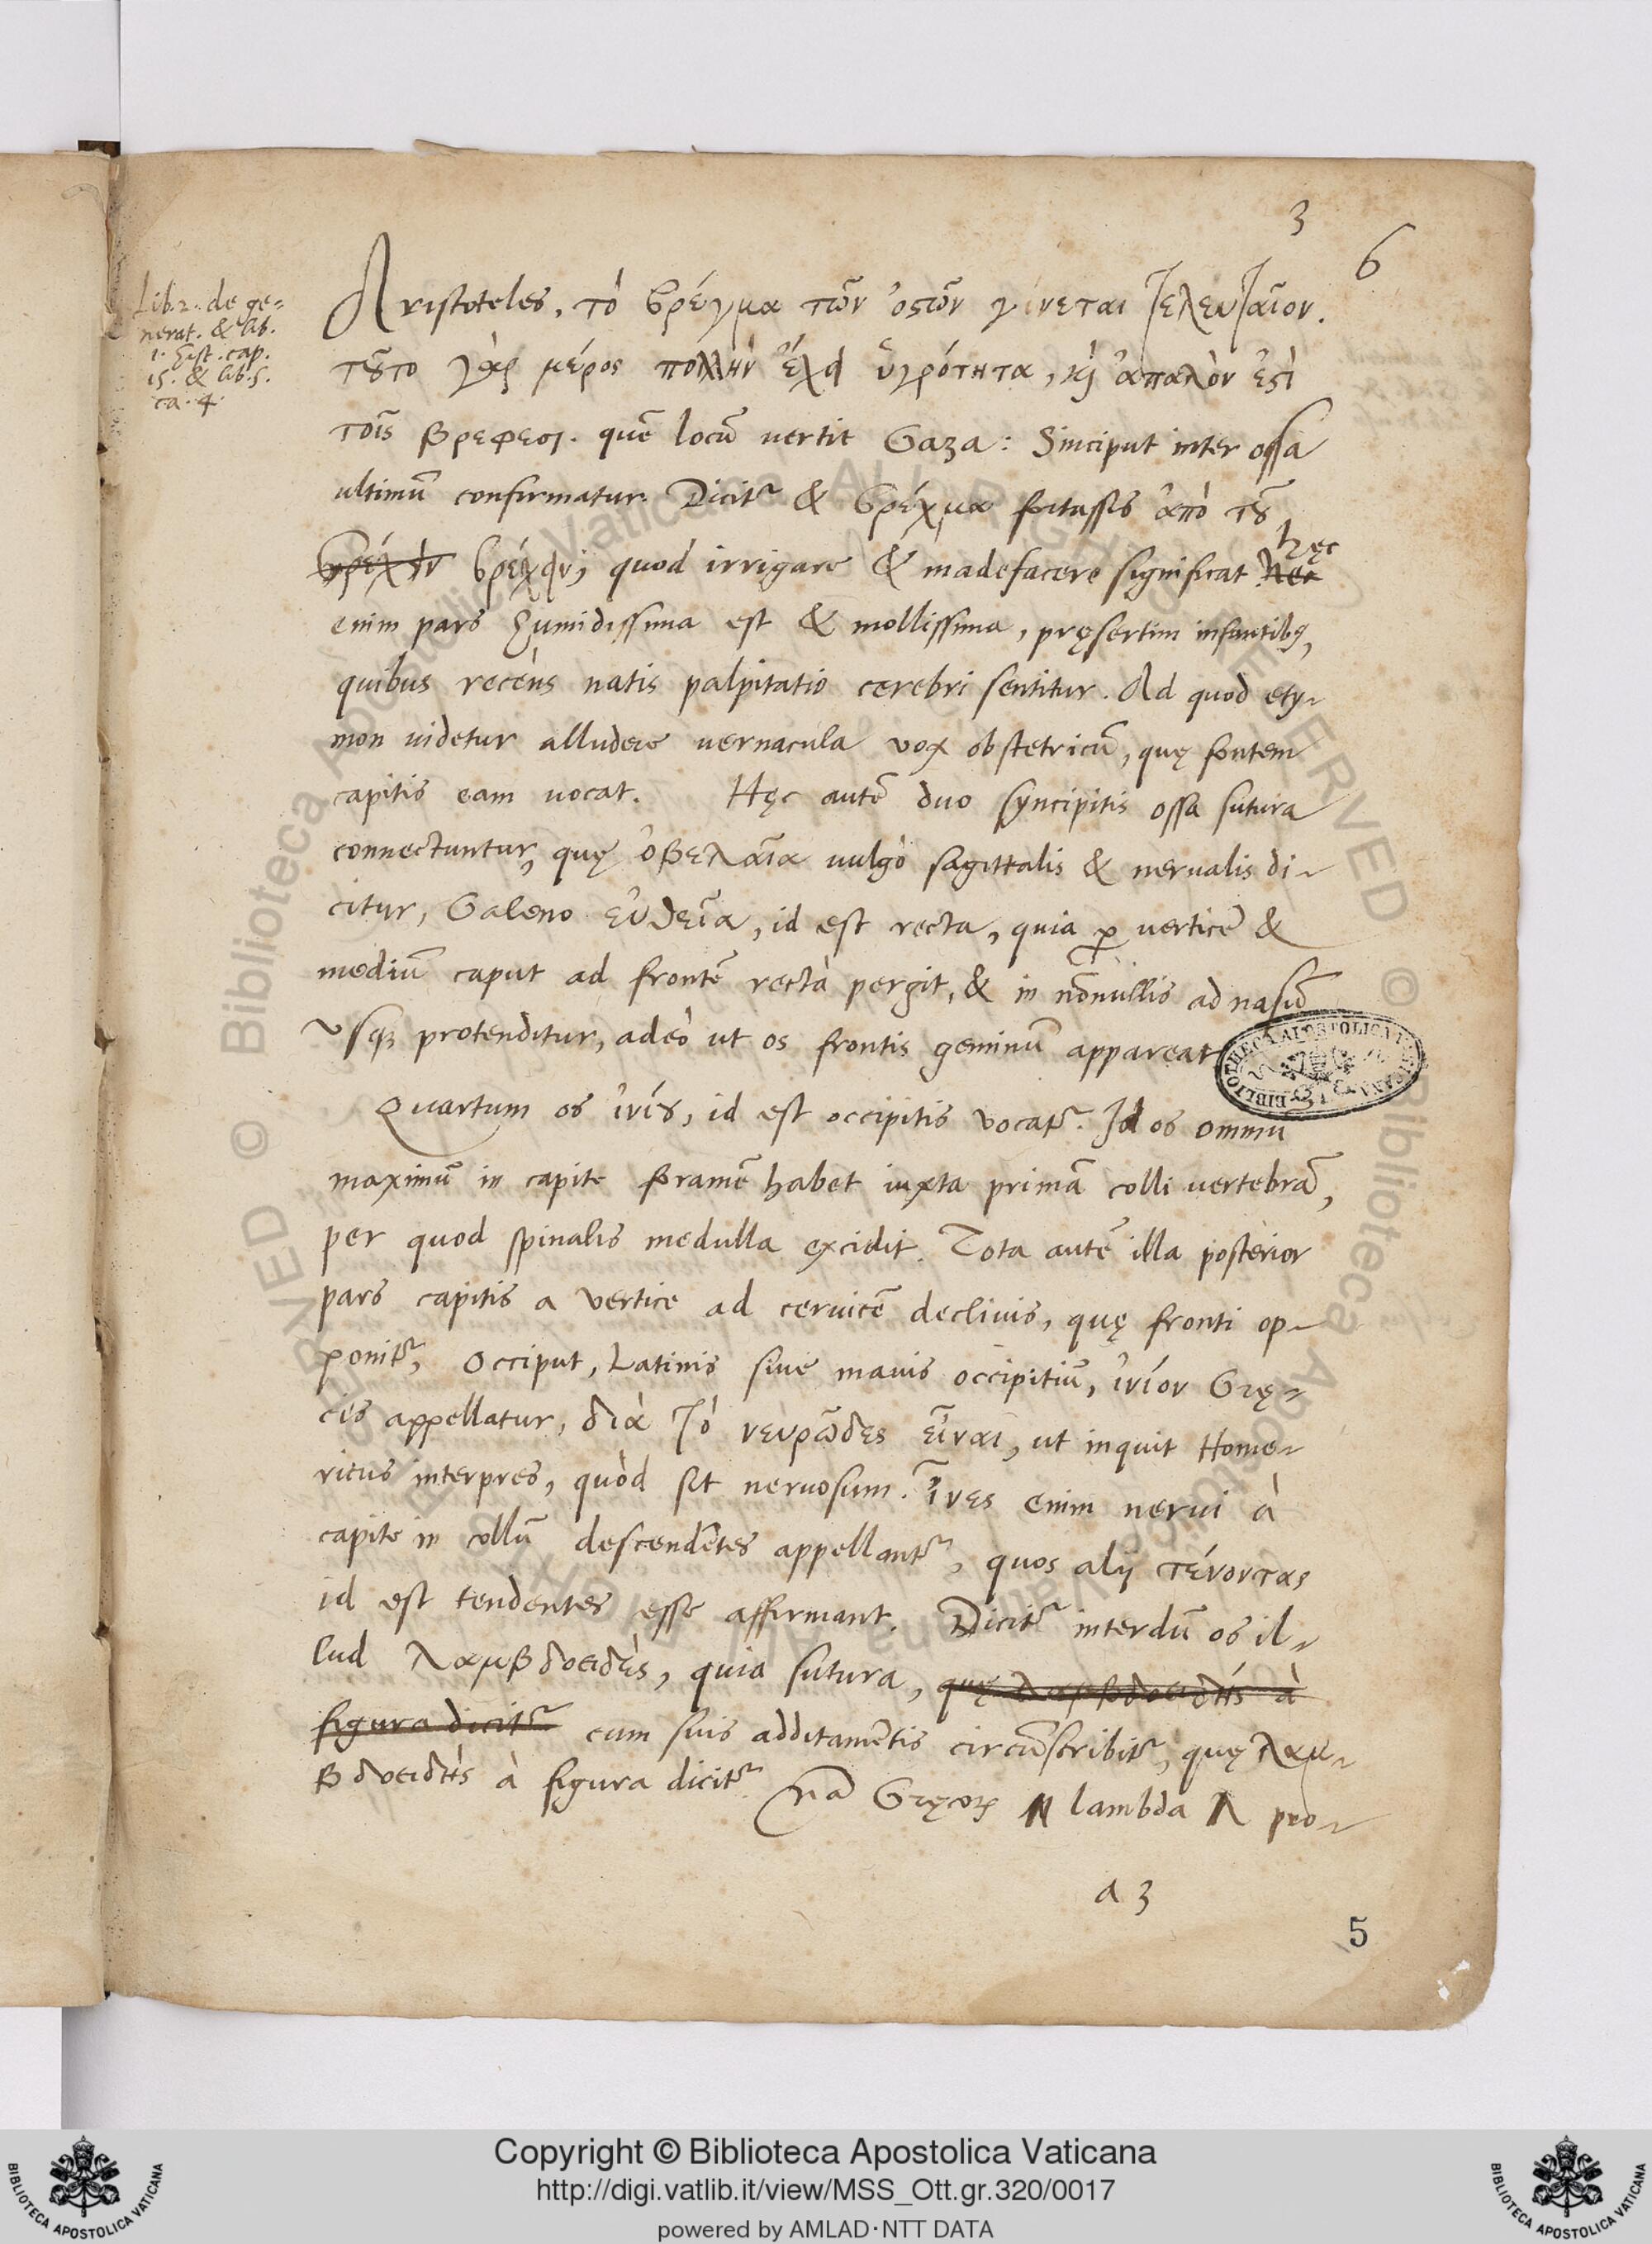 3
6
Lib. 2. de ge=
nerat. & lib.
1. hist. cap.
15. & lib. 5.
ca. 4.
Aristoteles, τὸ βρέγμα τῶν ὀστῶν γίνεται τελευταῖον.
τοῦτο γὰρ μέρος πολλὴν ἔχει ὑγρότητα, καὶ ἁπαλὸν ἐστὶ
τοῖς βρεφεσι. quē locū vertit Gaza: Sinciput inter ossa
ultimū confirmatur. Dicitr̃ & βρέχμα fortassis ἀπὸ τοῦ
βρέχειν βρέχειν, quod irrigare & madefacere significat hęc
enim pars humidissima est & mollissima, pręsertim infantibq,
quibus recèns natis palpitatio cerebri sentitur. Ad quod ety-
mon uidetur alludere uernacula vox obstetricū, quę fontem
capitis eam uocat. Hęc autē duo syncipitis ossa sutura
connectuntur, quę ὀβελαῖα uulgò sagittalis & nerualis di-
citur, Galeno εὐθεῖα, id est recta, quia ꝑ verticē &
mediū caput ad frontē rectà pergit, & in nōnullis ad nasū
usqꝫ protenditur, adeò ut os frontis geminū appareat
Quartum os ἰνίȣ, id est occipitis vocatr̃. Id os omniū
maximū in capite foramē habet iuxta primā colli vertebrā,
per quod spinalis medulla excidit. Tota autē illa posterior
pars capitis a vertice ad ceruicē decliuis, quę fronti op-
ponitr̃, occiput, Latinis siue mauis occipitiū, ἰνίον Grę-
cis appellatur, διὰ τὸ νευρῶδες εἶναι, ut inquit Home-
ricus interpres, quòd sit neruosum. ἶνες enim nerui à
capite in collū descendētes appellantr̃, quos alij τένοντας
id est tendentes esse affirmant. Dicitr̃ interdū os il-
lud λαμβδοειδὲς, quia sutura, quę λαμβδοειδὴς à
figura dicitr̃ cum suis additamētis circūscribitr̃, quę λαμ-
βδοειδὴς à figura dicitr̃. Nā Gręcoꝝ lambda Λ pro-
a 3
5
BIBLIOTHECA APOSTOLICA VATICANA
© Biblioteca Apostolica Vaticana ALL RIGHTS RESERVED
Copyright © Biblioteca Apostolica Vaticana
http://digi.vatlib.it/view/MSS_Ott.gr.320/0017
powered by AMLAD·NTT DATA
BIBLIOTECA APOSTOLICA VATICANA
BIBLIOTECA APOSTOLICA VATICANA